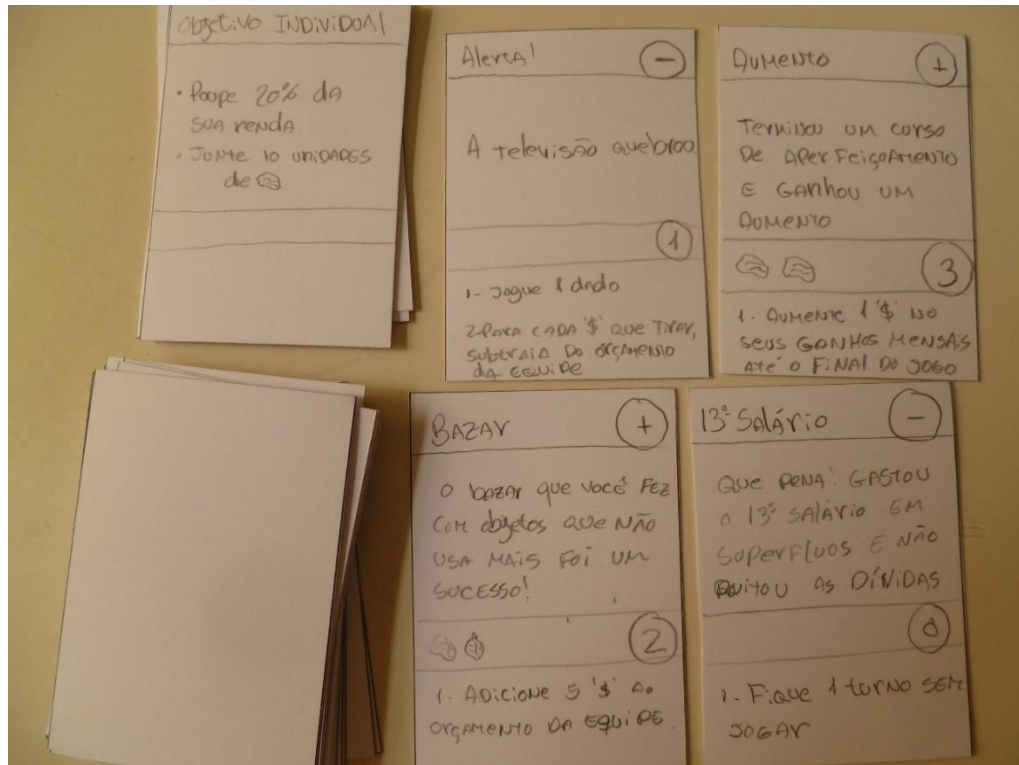 Objetivo INDIVIDUAl
• Poupe 20% da
sua renda.
• Junte 10 unidades
de
Alerta!
-
A televisão quebrou.
1
1- Jogue 1 dado
2- Para cada '$' que tirar,
subtraia do orçamento
da equipe
Aumento
+
Terminou um curso
de aperfeiçoamento
e ganhou um
aumento
3
1- Aumente 1 '$' no
seus ganhos mensais
até o final do jogo
Bazar
+
O bazar que você fez
com objetos que não
usa mais foi um
sucesso!
2
1- Adicione 5 '$' ao
orçamento da equipe.
13º Salário
-
Que pena! Gastou
o 13º salário em
supérfluos e não
quitou as dívidas
0
1- Fique 1 turno sem
jogar